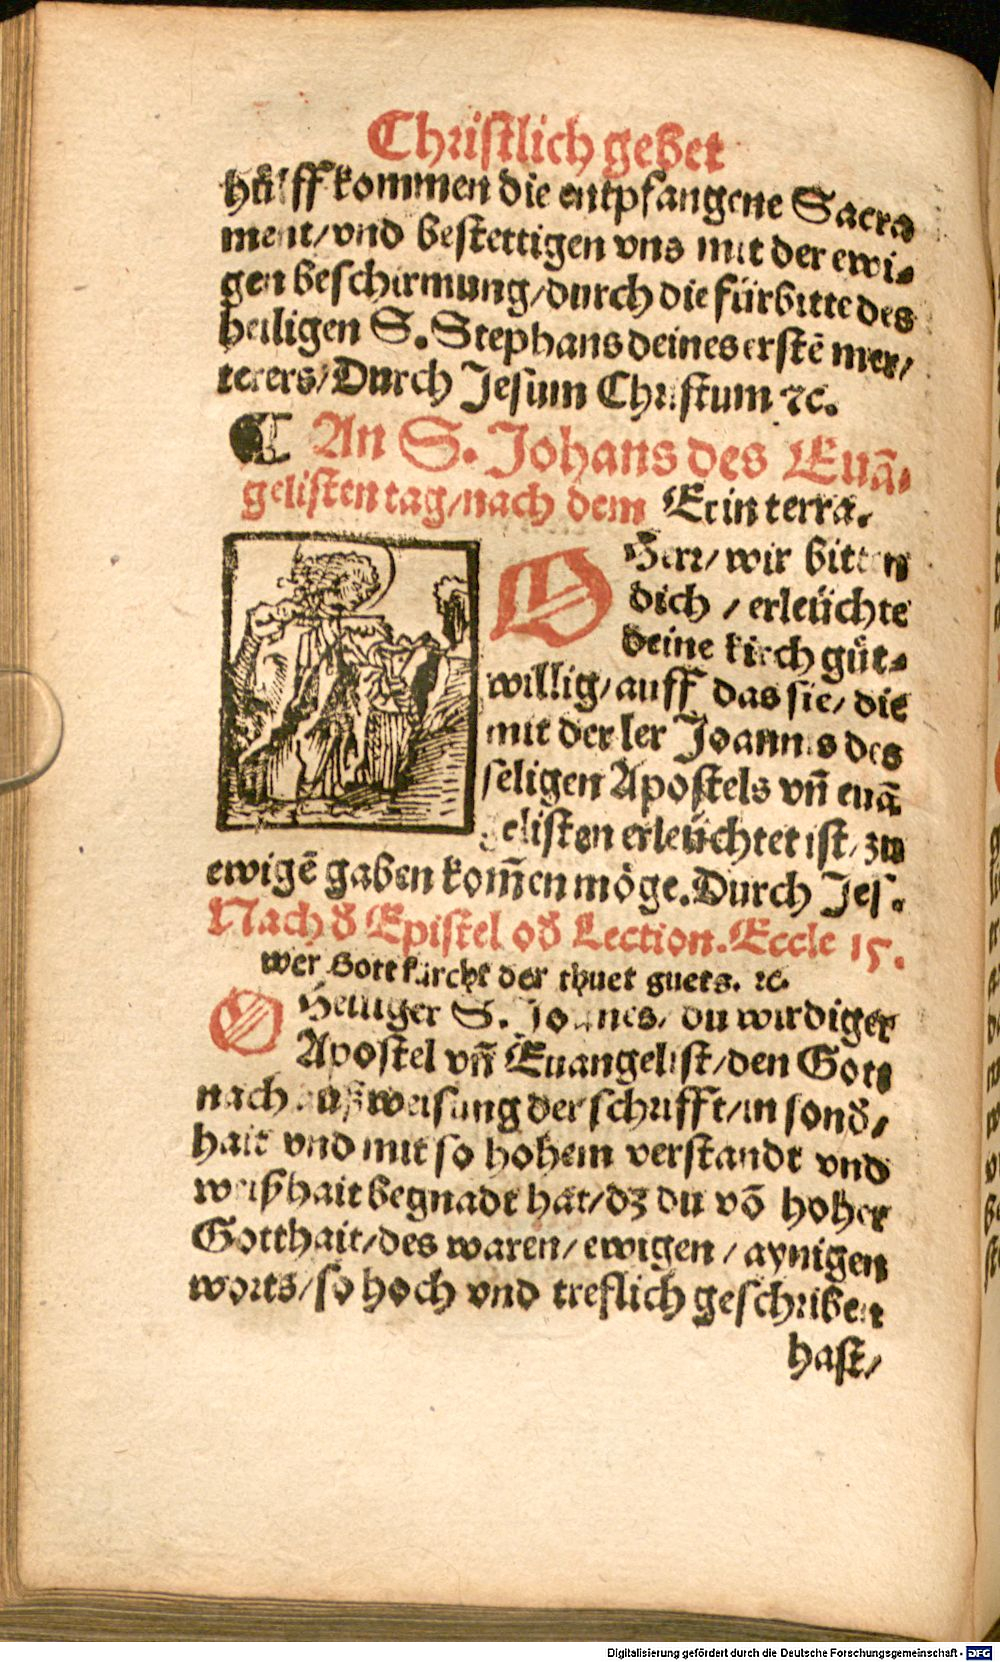 Christlich gebet
hülff kommen die entpfangene Sacra
ment/ vnd bestettigen vns mit der ewi⸗
gen beschirmung/ durch die fürbitte des
heiligen S. Stephans deines erstē mer/
terers/ Durch Jesum Christum ⁊c.
¶ An S. Johans des Euā⸗
gelisten tag/ nach dem Et in terra.
O Herr/ wir bitten
dich / erleüchte
deine kirch güt⸗
willig/ auff das sie/ die
mit der ler Joannis des
seligen Apostels vñ euā
gelisten erleüchtet ist/ zu
ewigē gaben kom̄en möge. Durch Jes.
Nach d̄ Epistel od̄ Lection. Eccle 15.
wer Gott fürcht der thuet guets. ⁊c.
O Heiliger S. Joannes/ du wirdiger
Apostel vñ Euangelist/ den Gots
nach außweisung der schrifft/ in sond̄/
hait vnd mit so hohem verstandt vnd
weißhait begnadt hat/ dz du vō hoher
Gotthait/ des waren/ ewigen / aynigen
worts/ so hoch vnd treflich geschriben
hast/
Digitalisierung gefördert durch die Deutsche Forschungsgemeinschaft - DFG